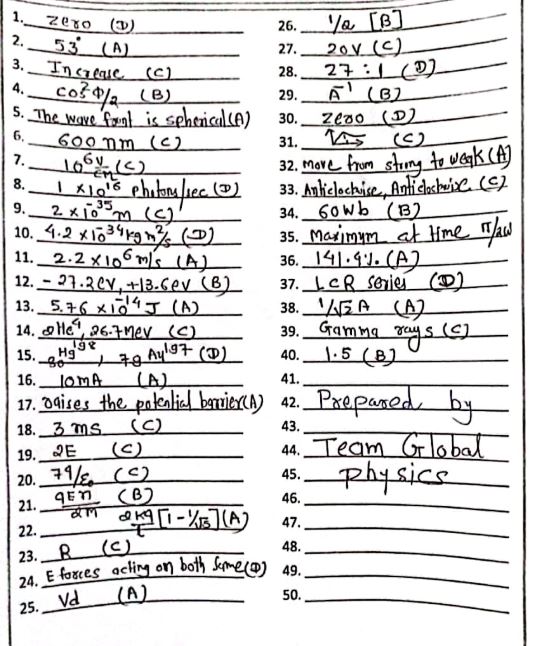 1. zero (D)
2. 53° (A)
3. Increase (C)
4. cos² Φ/2 (B)
5. The wave front is spherical (A)
6. 600 nm (C)
7. 10⁶ V/m (C)
8. 1 × 10¹⁶ photons/sec (D)
9. 2 × 10⁻³⁵ m (C)
10. 4.2 × 10⁻³⁴ kg m²/s (D)
11. 2.2 × 10⁶ m/s (A)
12. -27.2eV, +13.6eV (B)
13. 5.76 × 10⁻¹⁴ J (A)
14. 2He⁴, 26.7MeV (C)
15. 80Hg¹⁹⁸, 79Au¹⁹⁷ (D)
16. 10mA (A)
17. raises the potential barrier (A)
18. 3 ms (C)
19. 2E (C)
20. 7q/ε₀ (C)
21. qEπ/2M (B)
22. 2kq/L [1-1/√5] (A)
23. R (C)
24. E forces acting on both same (D)
25. Vd (A)
26. 1/a [B]
27. 20V (C)
28. 27:1 (D)
29. A⁻¹ (B)
30. zero (D)
31. (C)
32. move from strong to weak (A)
33. Anticlockwise, Anticlockwise (C)
34. 60Wb (B)
35. Maximum at time π/2ω
36. 141.4%. (A)
37. LCR series (D)
38. 1/√2 A (A)
39. Gamma rays (C)
40. 1.5 (B)
41.
42. Prepared by
43.
44. Team Global
45. physics
46.
47.
48.
49.
50.